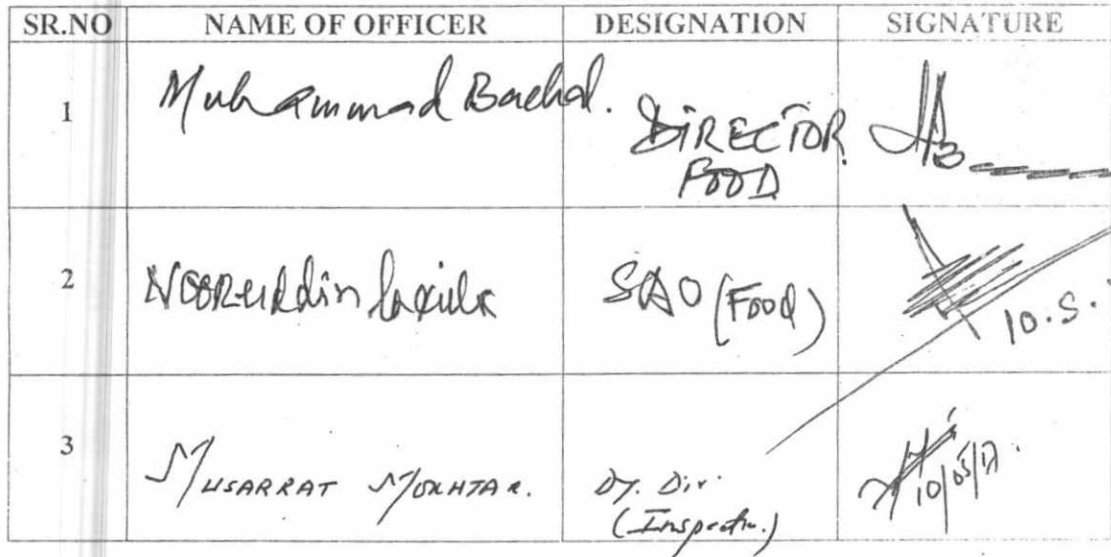 SR.NO NAME OF OFFICER DESIGNATION SIGNATURE
1 Muhammad Bachal. DIRECTOR FOOD
2 Nooruddin SAO (Food) 10.5.
3 MUSARRAT MOKHTAR. Dy. Dir. (Inspectn.) 10/05/17.